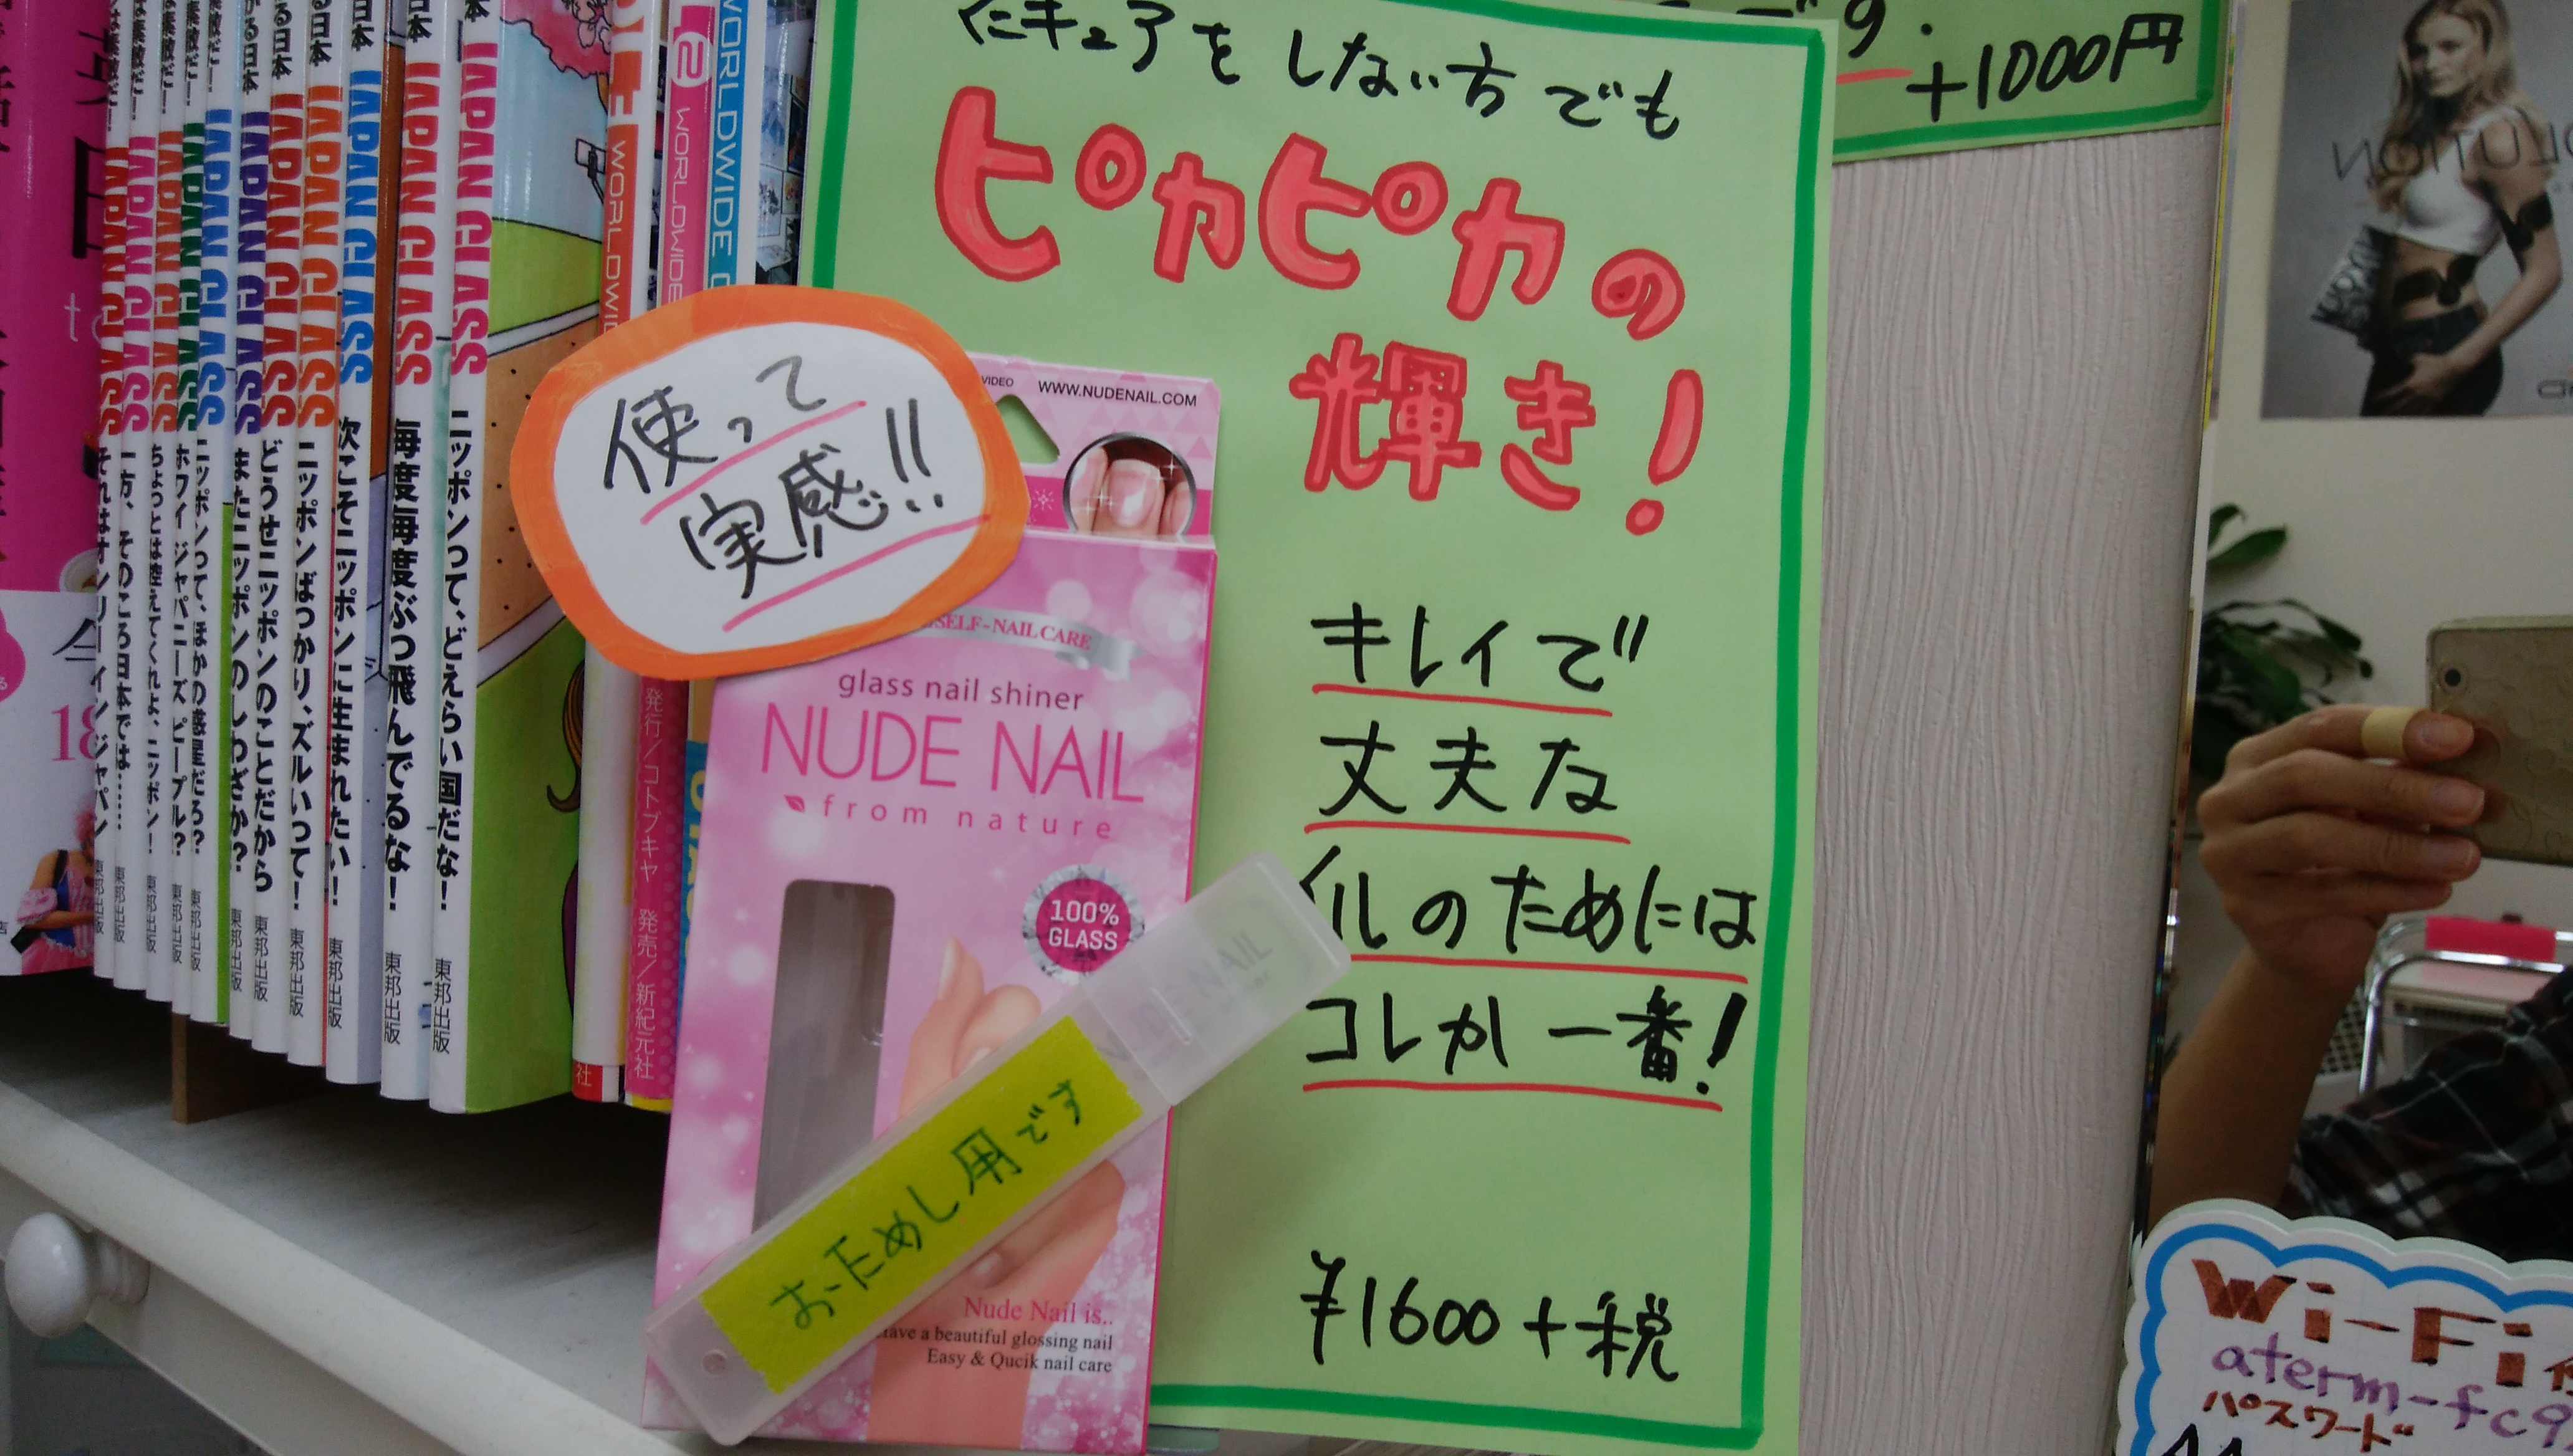 キュアをしない方でも
ピカピカの
輝き!
キレイで
丈夫な
イルのためには
コレが一番!
¥1600+税
+1000円
使って
実感!!
WWW.NUDENAIL.COM
SELF-NAIL CARE
glass nail shiner
NUDE NAIL
from nature
100%
GLASS
おためし用です
Nude Nail is..
have a beautiful glossing nail
Easy & Qucik nail care
JAPAN CLASS ニッポンって、どえらい国だな! 東邦出版
JAPAN CLASS 毎度毎度ぶっ飛んでるな! 東邦出版
JAPAN CLASS 次こそニッポンに生まれたい! 東邦出版
JAPAN CLASS ニッポンばっかり、ズルいって! 東邦出版
JAPAN CLASS どうせニッポンのことだから 東邦出版
JAPAN CLASS またニッポンのしわざか? 東邦出版
JAPAN CLASS ニッポンって、ほかの惑星だろ? 東邦出版
JAPAN CLASS ホワイ ジャパニーズ ピープル? 東邦出版
JAPAN CLASS 東邦出版
JAPAN CLASS 一方、そのころ日本では…… 東邦出版
JAPAN CLASS 東邦出版
WORLDWIDE
発行/コトブキヤ 発売/新紀元社
Wi-Fi
aterm-fc9
パスワード